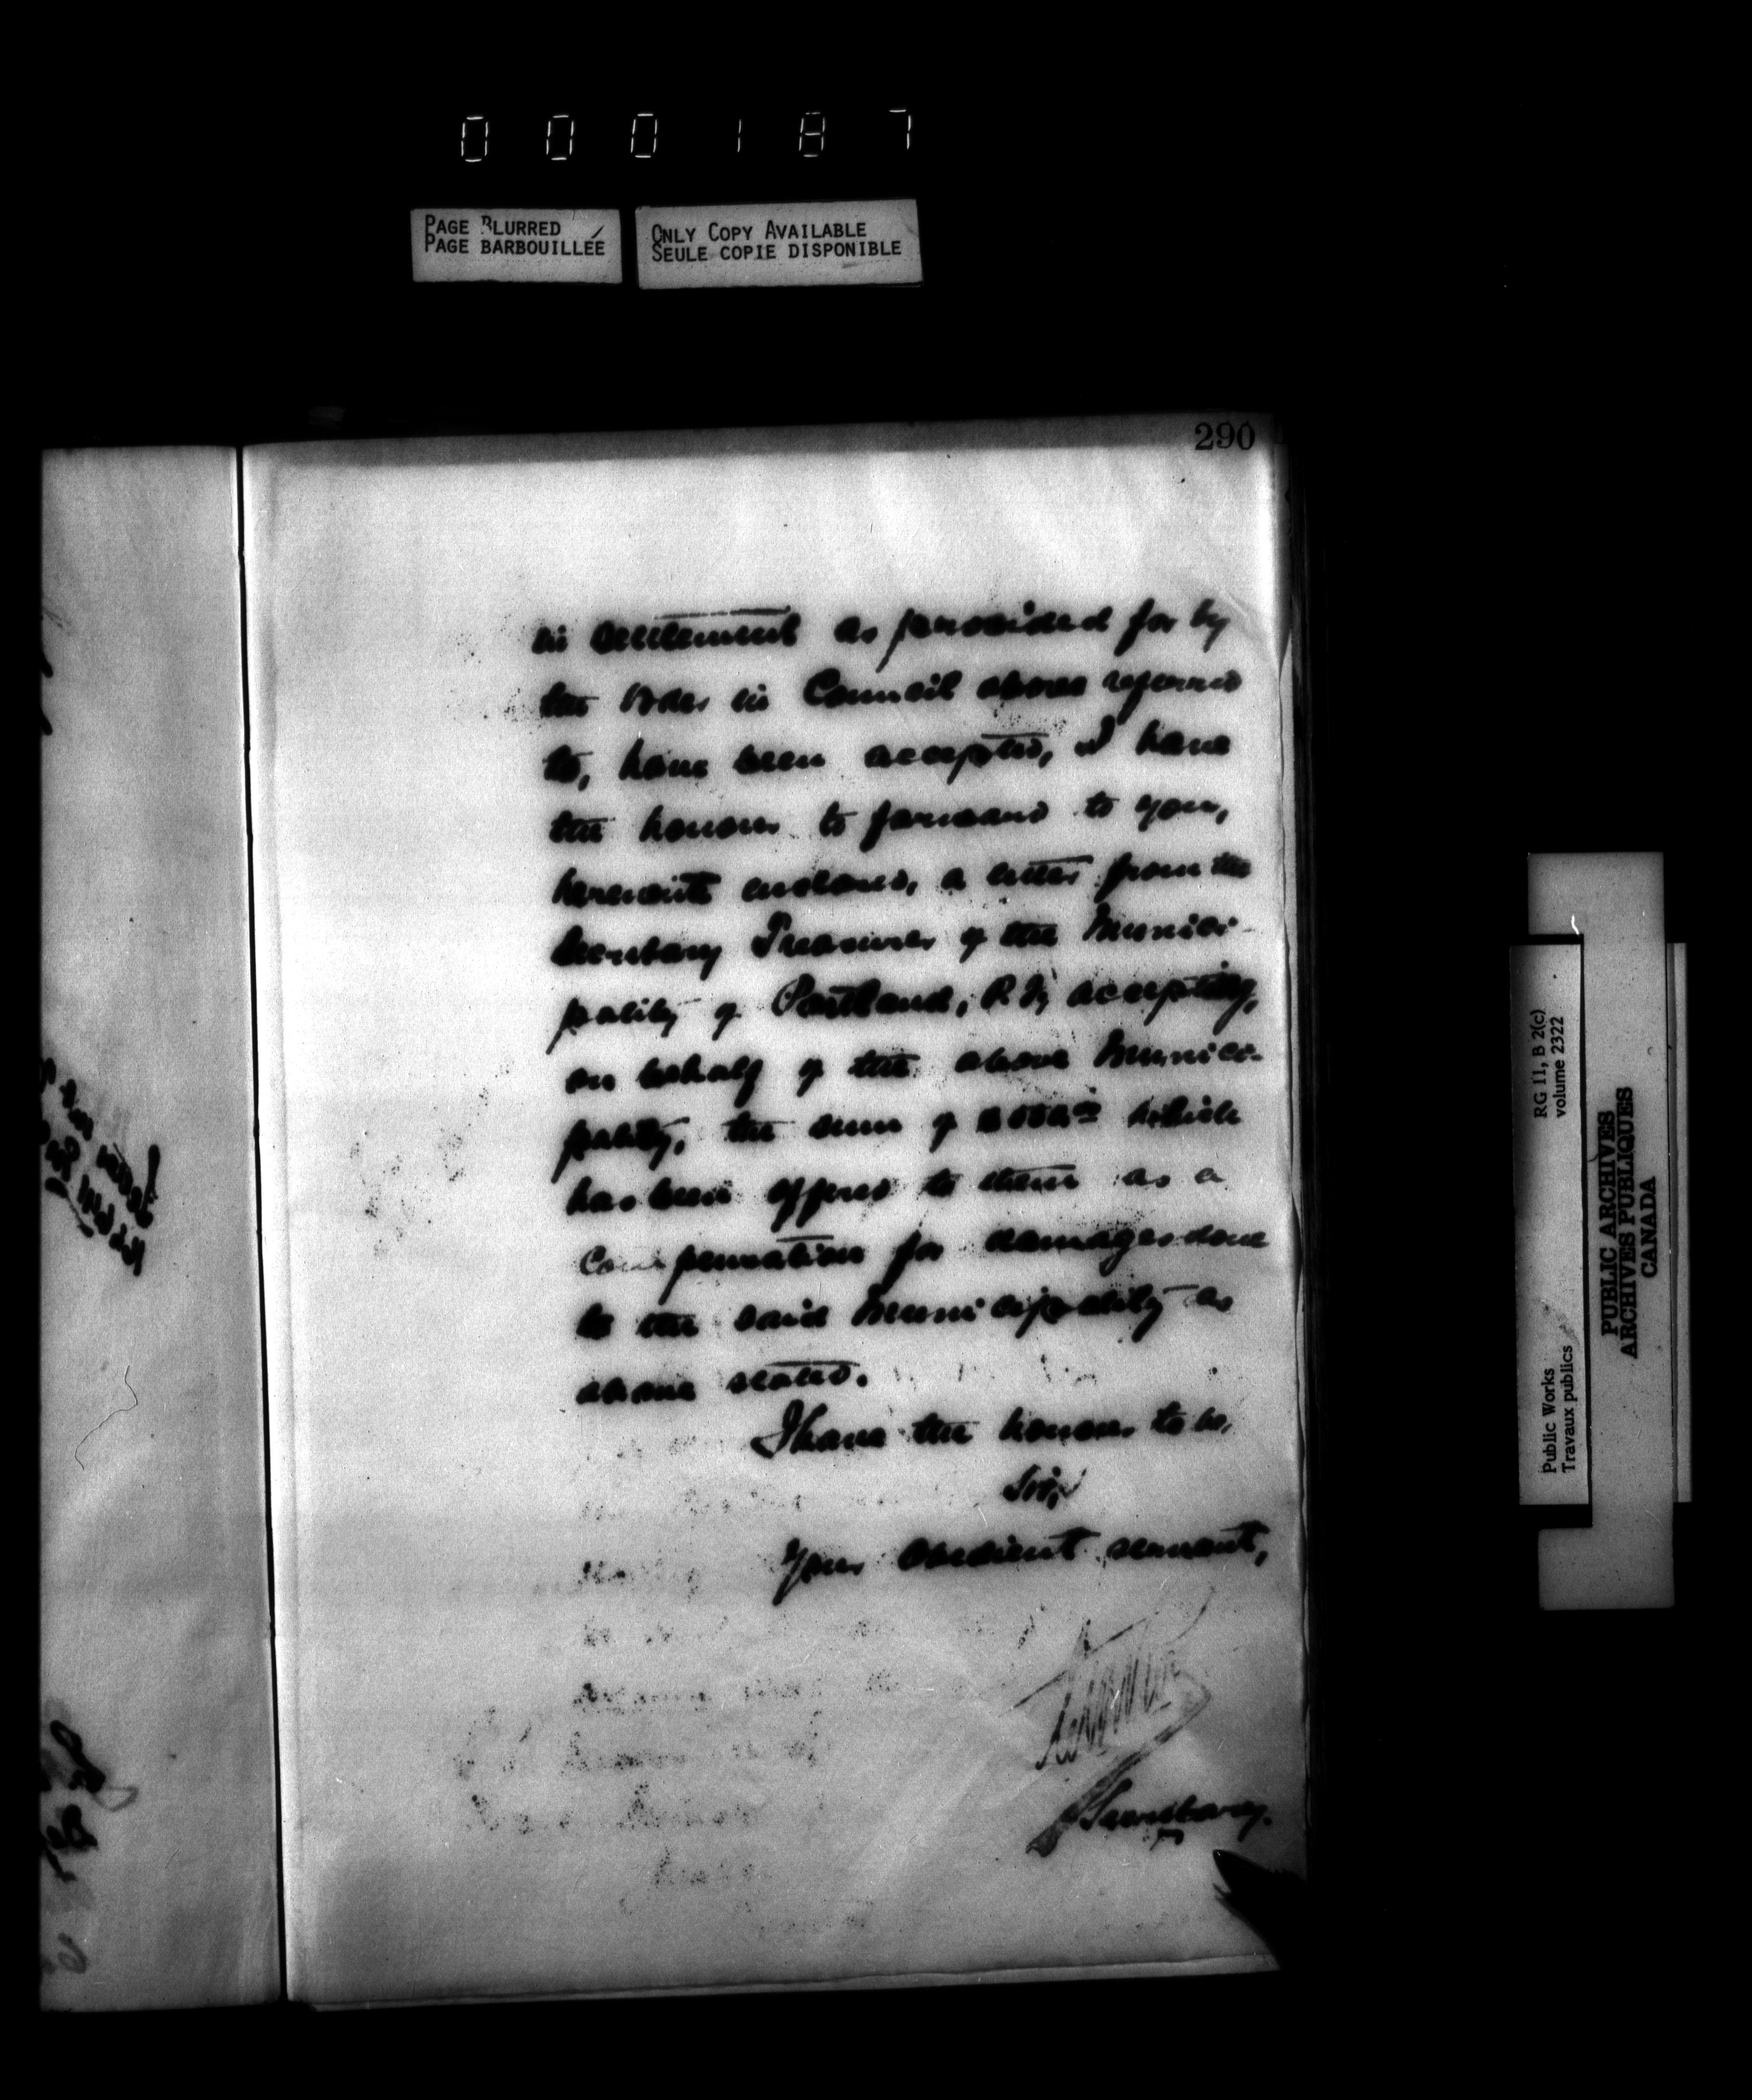 000187
PAGE BLURRED
PAGE BARBOUILLÉE
ONLY COPY AVAILABLE
SEULE COPIE DISPONIBLE
290
in settlement as provided for by
the Order in Council above referred
to, have been accepted, I have
the honour to forward to you,
herewith enclosed, a letter from the
Secretary Treasurer of the Munici-
pality of Portland, P.Q., accepting,
on behalf of the above Munici-
pality, the sum of which
has been offered to them as a
compensation for damages done
to the said Municipality as
above stated.
I have the honour to be,
Sir,
Your obedient servant,
Secretary.
RG 11, B 2(c)
volume 2322
Public Works
Travaux publics
PUBLIC ARCHIVES
ARCHIVES PUBLIQUES
CANADA